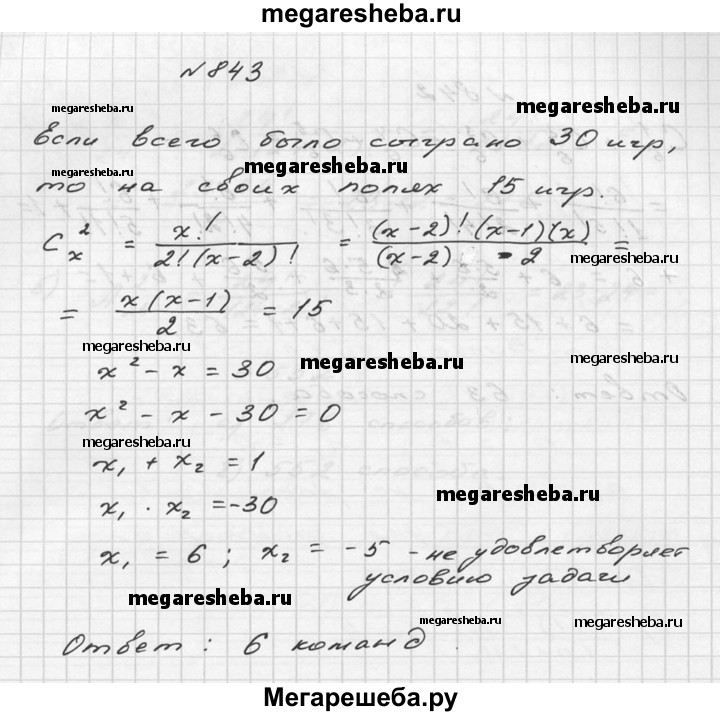 megaresheba.ru
№843
megaresheba.ru
megaresheba.ru
Если всего было сыграно 30 игр,
megaresheba.ru
megaresheba.ru
то на своих полях 15 игр.
C_x^2 = x!/(2!(x-2)!) = (x-2)!(x-1)(x)/((x-2) · 2) =
megaresheba.ru
= x(x-1)/2 = 15
megaresheba.ru
megaresheba.ru
megaresheba.ru
x² - x = 30
x² - x - 30 = 0
megaresheba.ru
x₁ + x₂ = 1
megaresheba.ru
x₁ · x₂ = -30
x₁ = 6 ; x₂ = -5 - не удовлетворяет
условию задачи
megaresheba.ru
megaresheba.ru
Ответ : 6 команд
Мегарешеба.ру